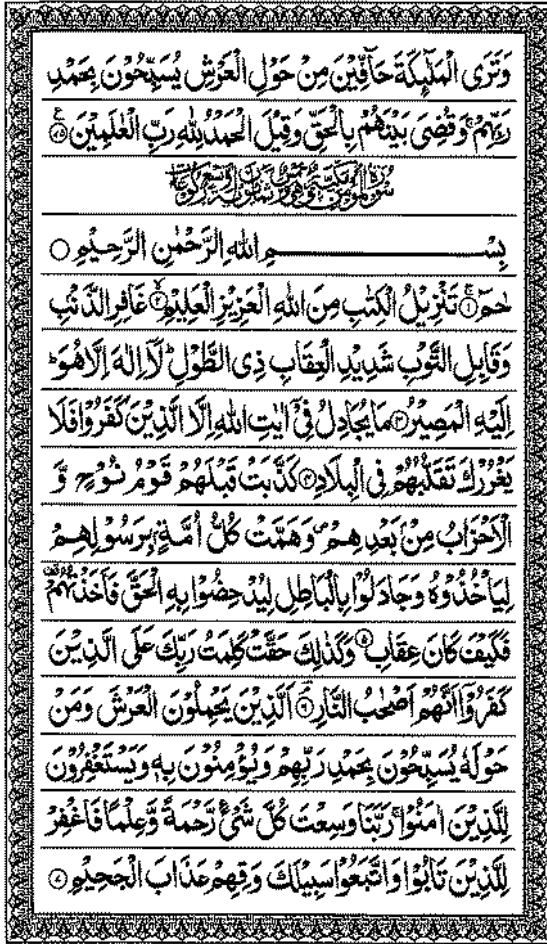 وَتَرَى الْمَلٰٓئِكَةَ حَآفِّيْنَ مِنْ حَوْلِ الْعَرْشِ يُسَبِّحُوْنَ بِحَمْدِ
رَبِّهِمْ ۚ وَقُضِيَ بَيْنَهُمْ بِالْحَقِّ وَقِيْلَ الْحَمْدُ لِلّٰهِ رَبِّ الْعٰلَمِيْنَ ﴿۷۵﴾
بِسْمِ اللّٰهِ الرَّحْمٰنِ الرَّحِيْمِ ○
حٰمٓ ﴿۱﴾ تَنْزِيْلُ الْكِتٰبِ مِنَ اللّٰهِ الْعَزِيْزِ الْعَلِيْمِ ﴿۲﴾ غَافِرِ الذَّنْۢبِ
وَقَابِلِ التَّوْبِ شَدِيْدِ الْعِقَابِ ذِي الطَّوْلِ ؕ لَاۤ اِلٰهَ اِلَّا هُوَ ؕ
اِلَيْهِ الْمَصِيْرُ ﴿۳﴾ مَا يُجَادِلُ فِيْۤ اٰيٰتِ اللّٰهِ اِلَّا الَّذِيْنَ كَفَرُوْا فَلَا
يَغْرُرْكَ تَقَلُّبُهُمْ فِي الْبِلَادِ ﴿۴﴾ كَذَّبَتْ قَبْلَهُمْ قَوْمُ نُوْحٍ وَّ
الْاَحْزَابُ مِنْۢ بَعْدِهِمْ ۪ وَهَمَّتْ كُلُّ اُمَّةٍۭ بِرَسُوْلِهِمْ
لِيَاْخُذُوْهُ وَجَادَلُوْا بِالْبَاطِلِ لِيُدْحِضُوْا بِهِ الْحَقَّ فَاَخَذْتُهُمْ
فَكَيْفَ كَانَ عِقَابِ ﴿۵﴾ وَكَذٰلِكَ حَقَّتْ كَلِمَتُ رَبِّكَ عَلَى الَّذِيْنَ
كَفَرُوْۤا اَنَّهُمْ اَصْحٰبُ النَّارِ ﴿۶﴾ اَلَّذِيْنَ يَحْمِلُوْنَ الْعَرْشَ وَمَنْ
حَوْلَهٗ يُسَبِّحُوْنَ بِحَمْدِ رَبِّهِمْ وَيُؤْمِنُوْنَ بِهٖ وَيَسْتَغْفِرُوْنَ
لِلَّذِيْنَ اٰمَنُوْا ۚ رَبَّنَا وَسِعْتَ كُلَّ شَيْءٍ رَّحْمَةً وَّعِلْمًا فَاغْفِرْ
لِلَّذِيْنَ تَابُوْا وَاتَّبَعُوْا سَبِيْلَكَ وَقِهِمْ عَذَابَ الْجَحِيْمِ